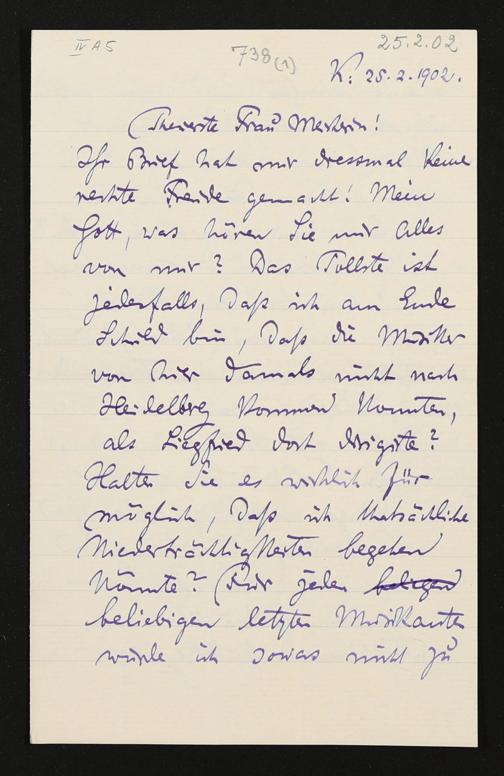 IV A 5
738 (1)
25.2.02
K. 25.2.1902.
Theuerste Frau Meisterin!
Ihr Brief hat mir diessmal keine
rechte Freude gemacht! Mein
Gott, was hören Sie nur Alles
von mir? Das Tollste ist
jedenfalls, daß ich am Ende
Schuld bin, daß die Musiker
von hier damals nicht nach
Heidelberg kommen konnten,
als Siegfried dort dirigirte?
Halten Sie es wirklich für
möglich, daß ich thatsächliche
Niederträchtigkeiten begehen
könnte? Für jeden
beliebigen letzten Musikanten
würde ich sowas nicht zu